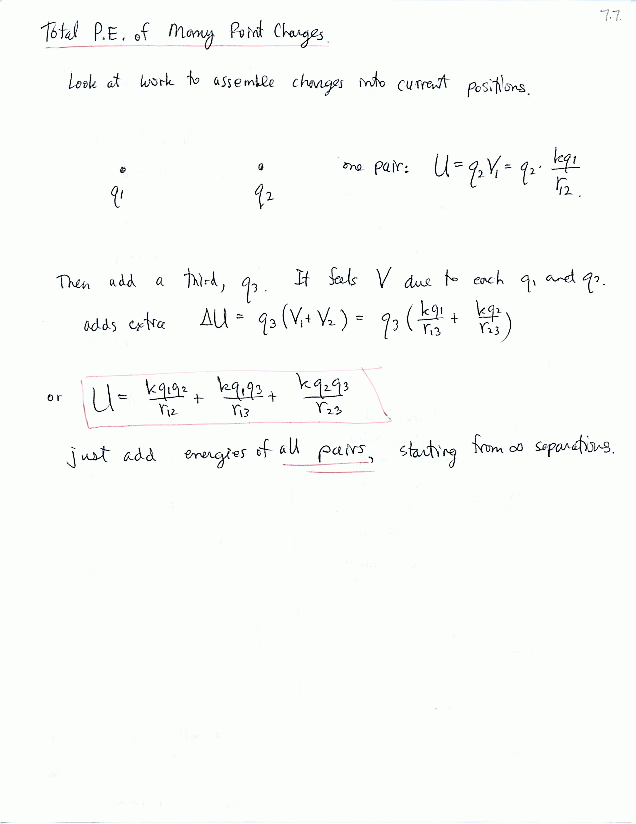 7.7.
Total P.E. of Many Point Charges.
Look at work to assemble charges into current positions.
q1 q2 one pair: U = q2V1 = q2 · kq1/r12.
Then add a third, q3. It feels V due to each q1 and q2.
adds extra ΔU = q3(V1 + V2) = q3(kq1/r13 + kq2/r23)
or U = kq1q2/r12 + kq1q3/r13 + kq2q3/r23
just add energies of all pairs, starting from ∞ separations.